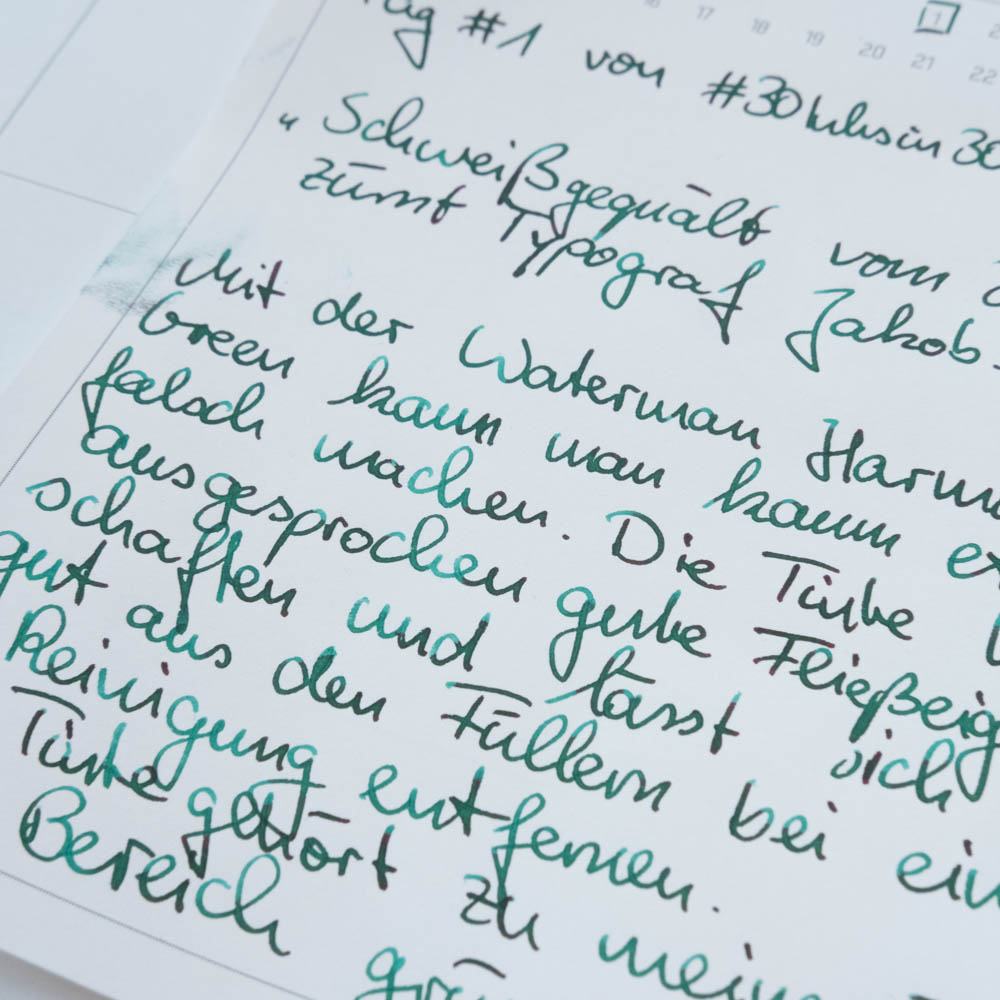 16 17 18 19 20 21 22
1
Tag #1 von #30Inksin30
„Schweißgequält vom
zürnt Typograf Jakob
Mit der Waterman Harm
Green kann man kaum et
falsch machen. Die Tinte
ausgesprochen gute Fließeig
schaften und lässt sich
gut aus den Füllern bei ein
Reinigung entfernen.
Tinte gehört zu mein
Bereich grü